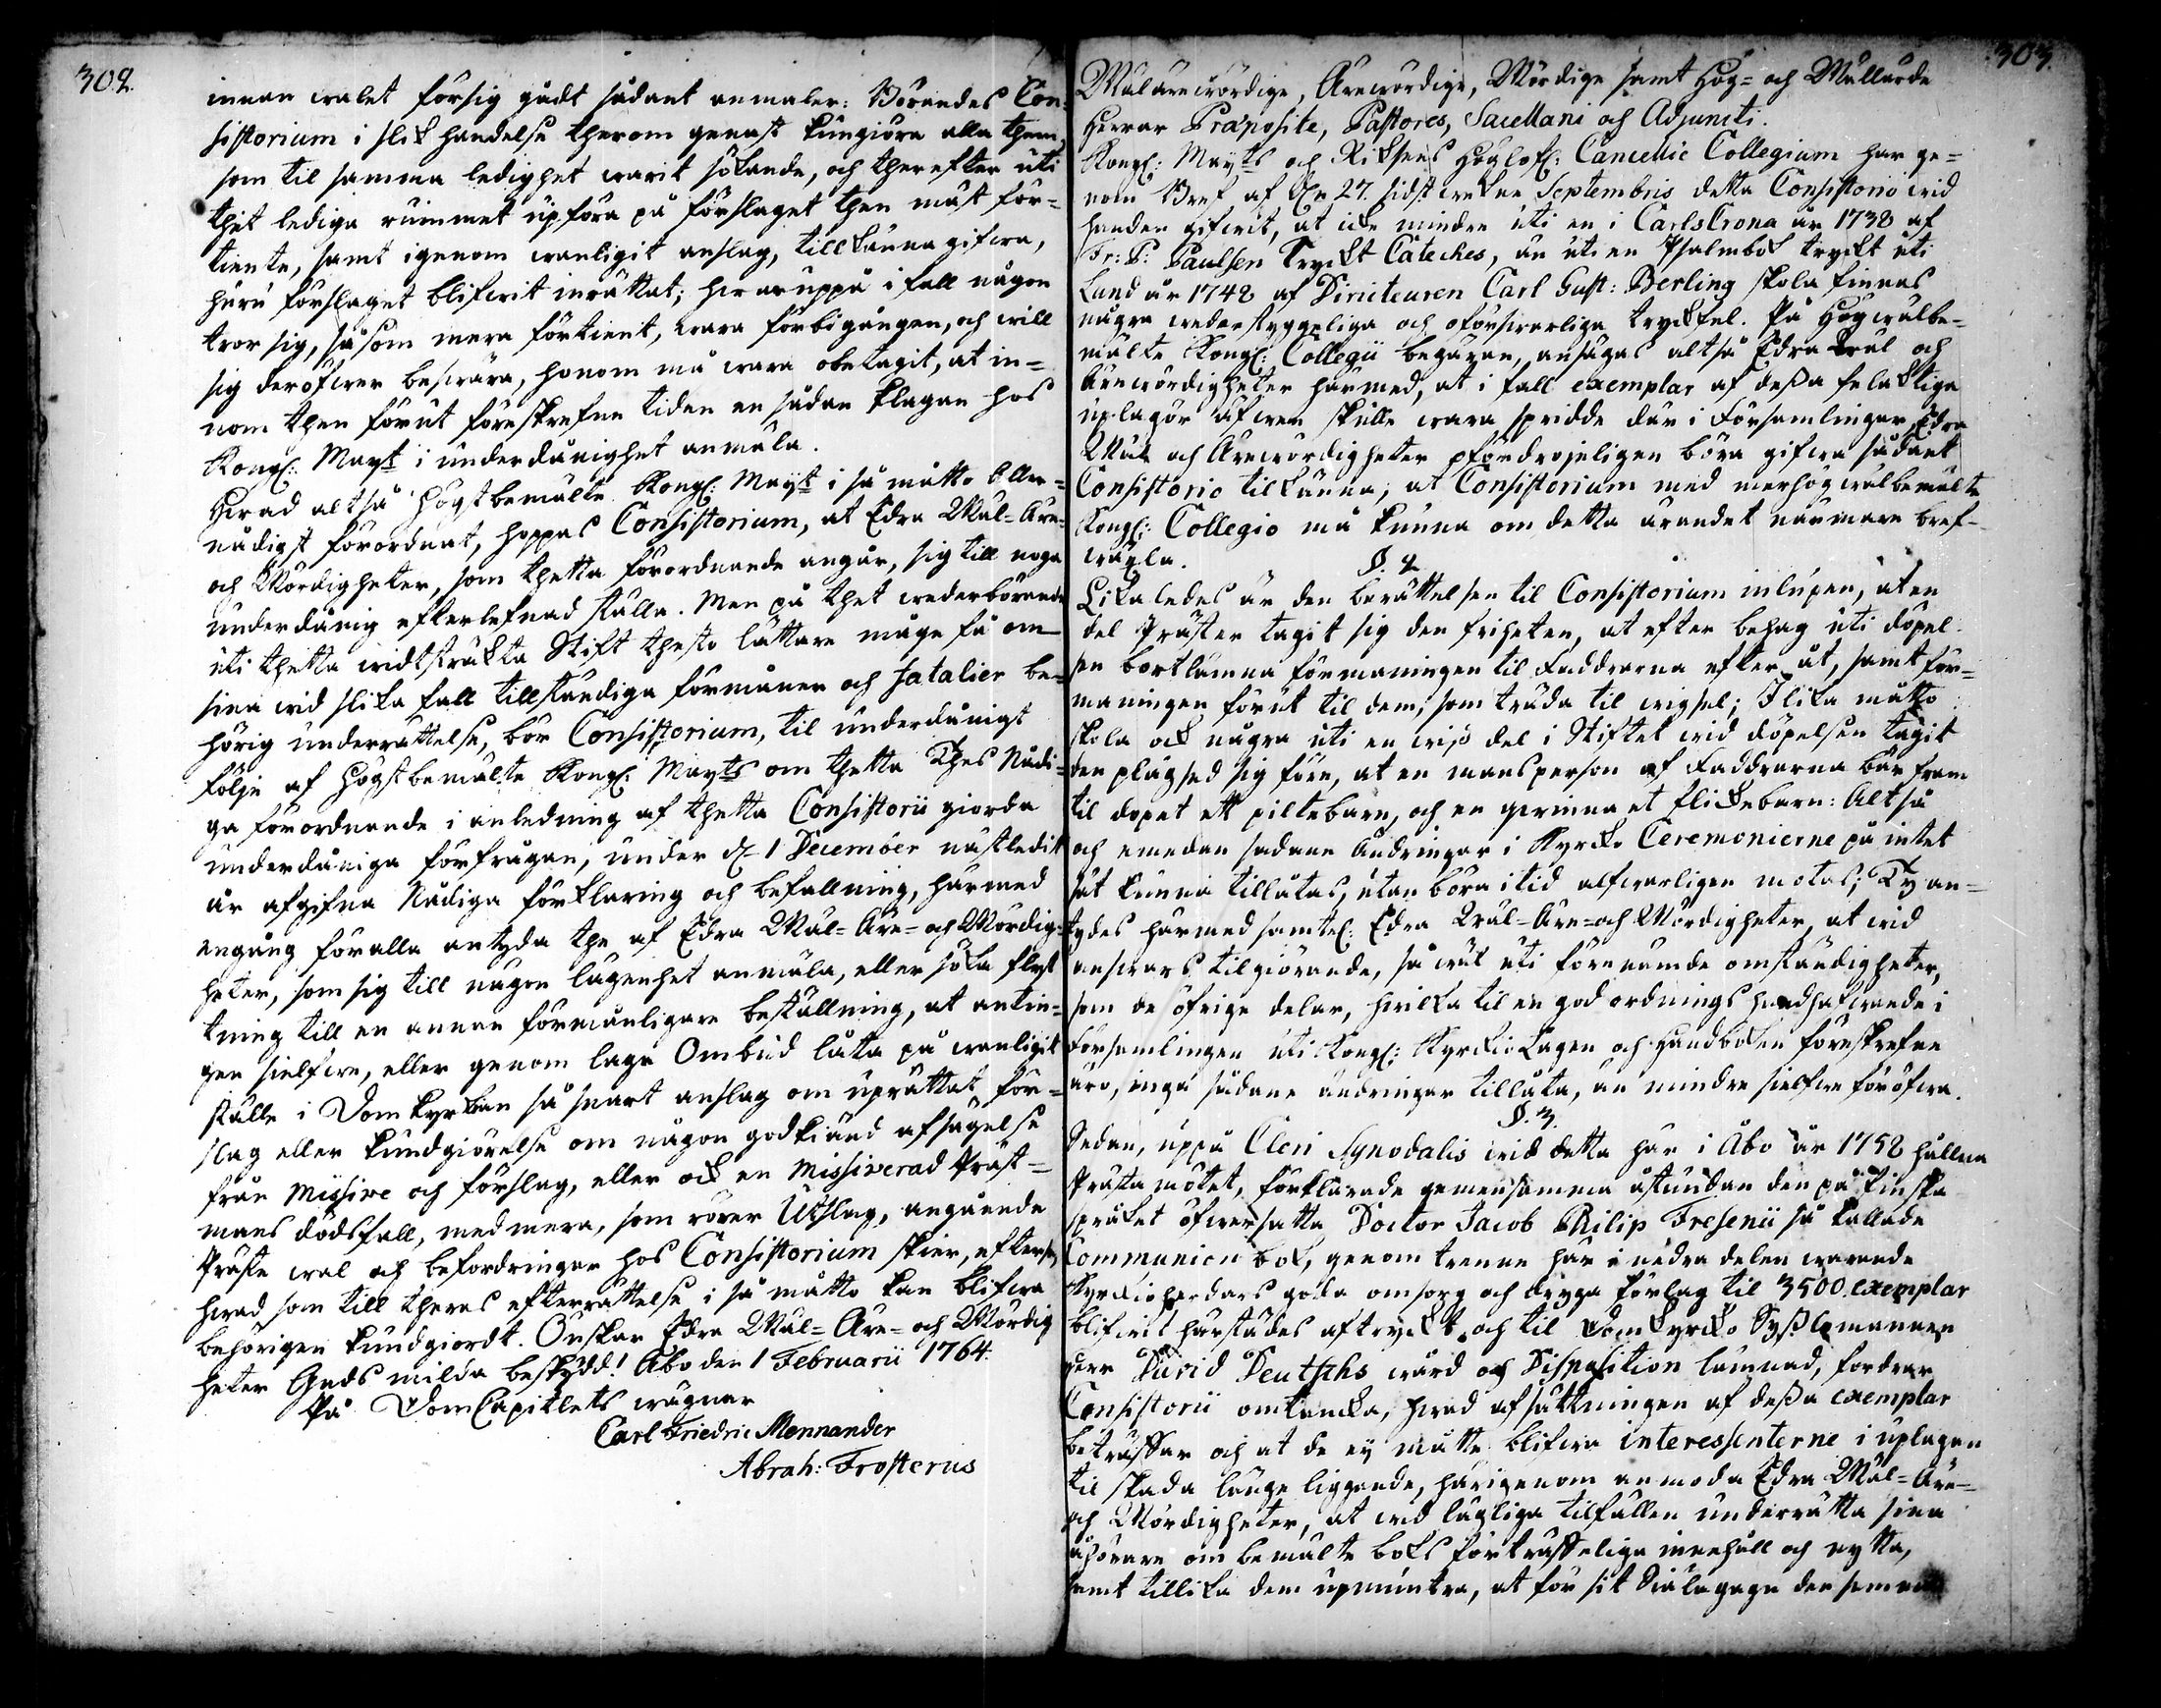 302.
innan walet försig gådt sådant anmaler: Börandes Con-
sistorium i slik handelse therom genast kungiöra alla them,
som til samma ledighet warit sökande, och therefter uti
thet lediga rummet upföra på förslaget then mäst för-
tiente, samt igenom wanligit anslag, tillkänna gifwa,
huru förslaget blifwit inrättat; hwaruppå i fall någon
tror sig, såsom mera förtient, wara förbigången, och will
sig deröfwer beswära, honom må wara obetagit, at in-
nom then förut föreskrefne tiden en sådan klagan hos
Kongl: Mayt i underdånighet anmäla.
Hwad altså Högstbemälte Kongl: Mayt i så måtto Aller-
nådigst förordnat, hoppas Consistorium, at Edra Wäl-Äre-
och Wördigheter, som thetta förordnande angår, sig till noga
underdånig efterlefnad ställa. Men på thet wederbörande
uti thetta widtsträkta Stift thesto lättare måge få om
sina wid slika fall tillständiga förmåner och fatalier be-
hörig underrättelse, bör Consistorium, til underdånigt
följe af Högstbemälte Kongl: Mayts om thetta Thes Nådi-
ga förordnande i anledning af thetta Consistorii giorda
underdåniga förfrågan, under d. 1 December nästledit
år afgifna Nådiga förklaring och befallning, härmed
engång för alla antyda the af Edra Wäl-Äre- och Wördig-
heter, som sig till någon lägenhet anmäla, eller söka flyt-
tning till en annan förmånligare beställning, at antin-
gen sielfwe, eller genom laga Ombud låta på wanligit
ställe i Domkyrkan så snart anslag om uprättat för-
slag eller kundgiörelse om någon godkiänd afsägelse
från Missive och förslag, eller ock en Missiverad Präst-
mans dödsfall, med mera, som rörer Utslag, angående
Präste wal och befordringar hos Consistorium skier, efterse,
hwad som till theras efterrättelse i så måtto kan blifwa
behörigen kundgiordt. Önskar Edra Wäl-Äre- och Wördig
heter Guds milda beskydd! Åbo den 1 Februarii 1764.
På DomCapitlets wägnar
Carl Friedric Mennander
Abrah: Frosterus
303.
Wälärewördige, Ärewördige, Wördige samt Hög- och Wällärde
Herrar Præposite, Pastores, Sacellani och Adjuncti.
Kongl: Mayts och Riksens Höglofl: Cancellie Collegium har ge-
nom Bref af den 27. sidst wekne Septembris detta Consistorio wid
handen gifwit, at icke mindre uti en i CarlsCrona år 1738 af
Fr: P: Paulsen Tryckt Cateches, än uti en Psalmbok tryckt uti
Lund år 1742 af Directeuren Carl Gust: Berling skola finnas
några wederstyggeliga och oförswarliga tryckfel. På Högwälbe-
mälte Kongl: Collegii begäran, ansägas altså Edra Wäl och
Ärewördigheter härmed, at i fall exemplar af dessa felaktiga
uplagor äfwen skulle wara spridde där i Församlingar, Edra
Wäl och Ärewördigheter ofördröjeligen böra gifwa sådant
Consistorio tilkänna, at Consistorium med merhögwälbemälte
Kongl: Collegio må kunna om detta ärendet närmare bref-
wäxla.
§. 2
Likaledes är den berättelsen til Consistorium inlupen, at en
del Präster tagit sig den friheten, at efter behag uti döpel-
sen bortlämna förmaningen til Faddrarna efteråt, samt för-
maningen förut til dem, som träda til wigsel; I lika måtto
skola ock några uti en wiss del i Stiftet wid döpelsen tagit
den plägsed sig före, at en mansperson af Faddrarna bär fram
til dopet ett piltebarn, och en qwinna et flickebarn: Altså
och emedan sådane Ändringar i Kyrcko Ceremonierne på intet
sät kunna tillåtas, utan böra i tid alfwarligen motas; Ty an-
tydes härmed samtel: Edra Wäl-Äre- och Wördigheter, at wid
answars tilgiörande, så wäl uti förenämde omständigheter,
som de öfrige delar, hwilka til en god ordnings handhafwande i
Församlingen uti Kongl: KyrckioLagen och Handboken föreskrefne
äro, inga sådane ändringar tillåta, än mindre sielfwe föröfwa.
§. 3.
Sedan, uppå Cleri Synodalis wid detta här i Åbo år 1752 hållna
Prästa mötet, förklarade gemensamma åstundan den på Finska
språket öfwersatta Doctor Jacob Philip Fresenii så kallade
Communion bok, genom trenne här i nedra delen warande
Kyrckioherdars goda omsorg och dryga förlag til 3500. exemplar
blifwit härstädes aftryckt och til DomKyrcko Sysslomannen
Herr David Deutschs wård och Disposition lämnad, fordrar
Consistorii omtancka, hwad afsättningen af dessa exemplar
beträffar och at de ey måtte blifwa interessenterne i uplagan
til skada länge liggande, härigenom anmoda Edra Wäl-Äre-
och Wördigheter, at wid lägliga tilfällen underrätta sina
åhörare om bemälte boks förträffeliga innehåll och nytta,
samt tillika dem upmuntra, at för sit Siälagagn den